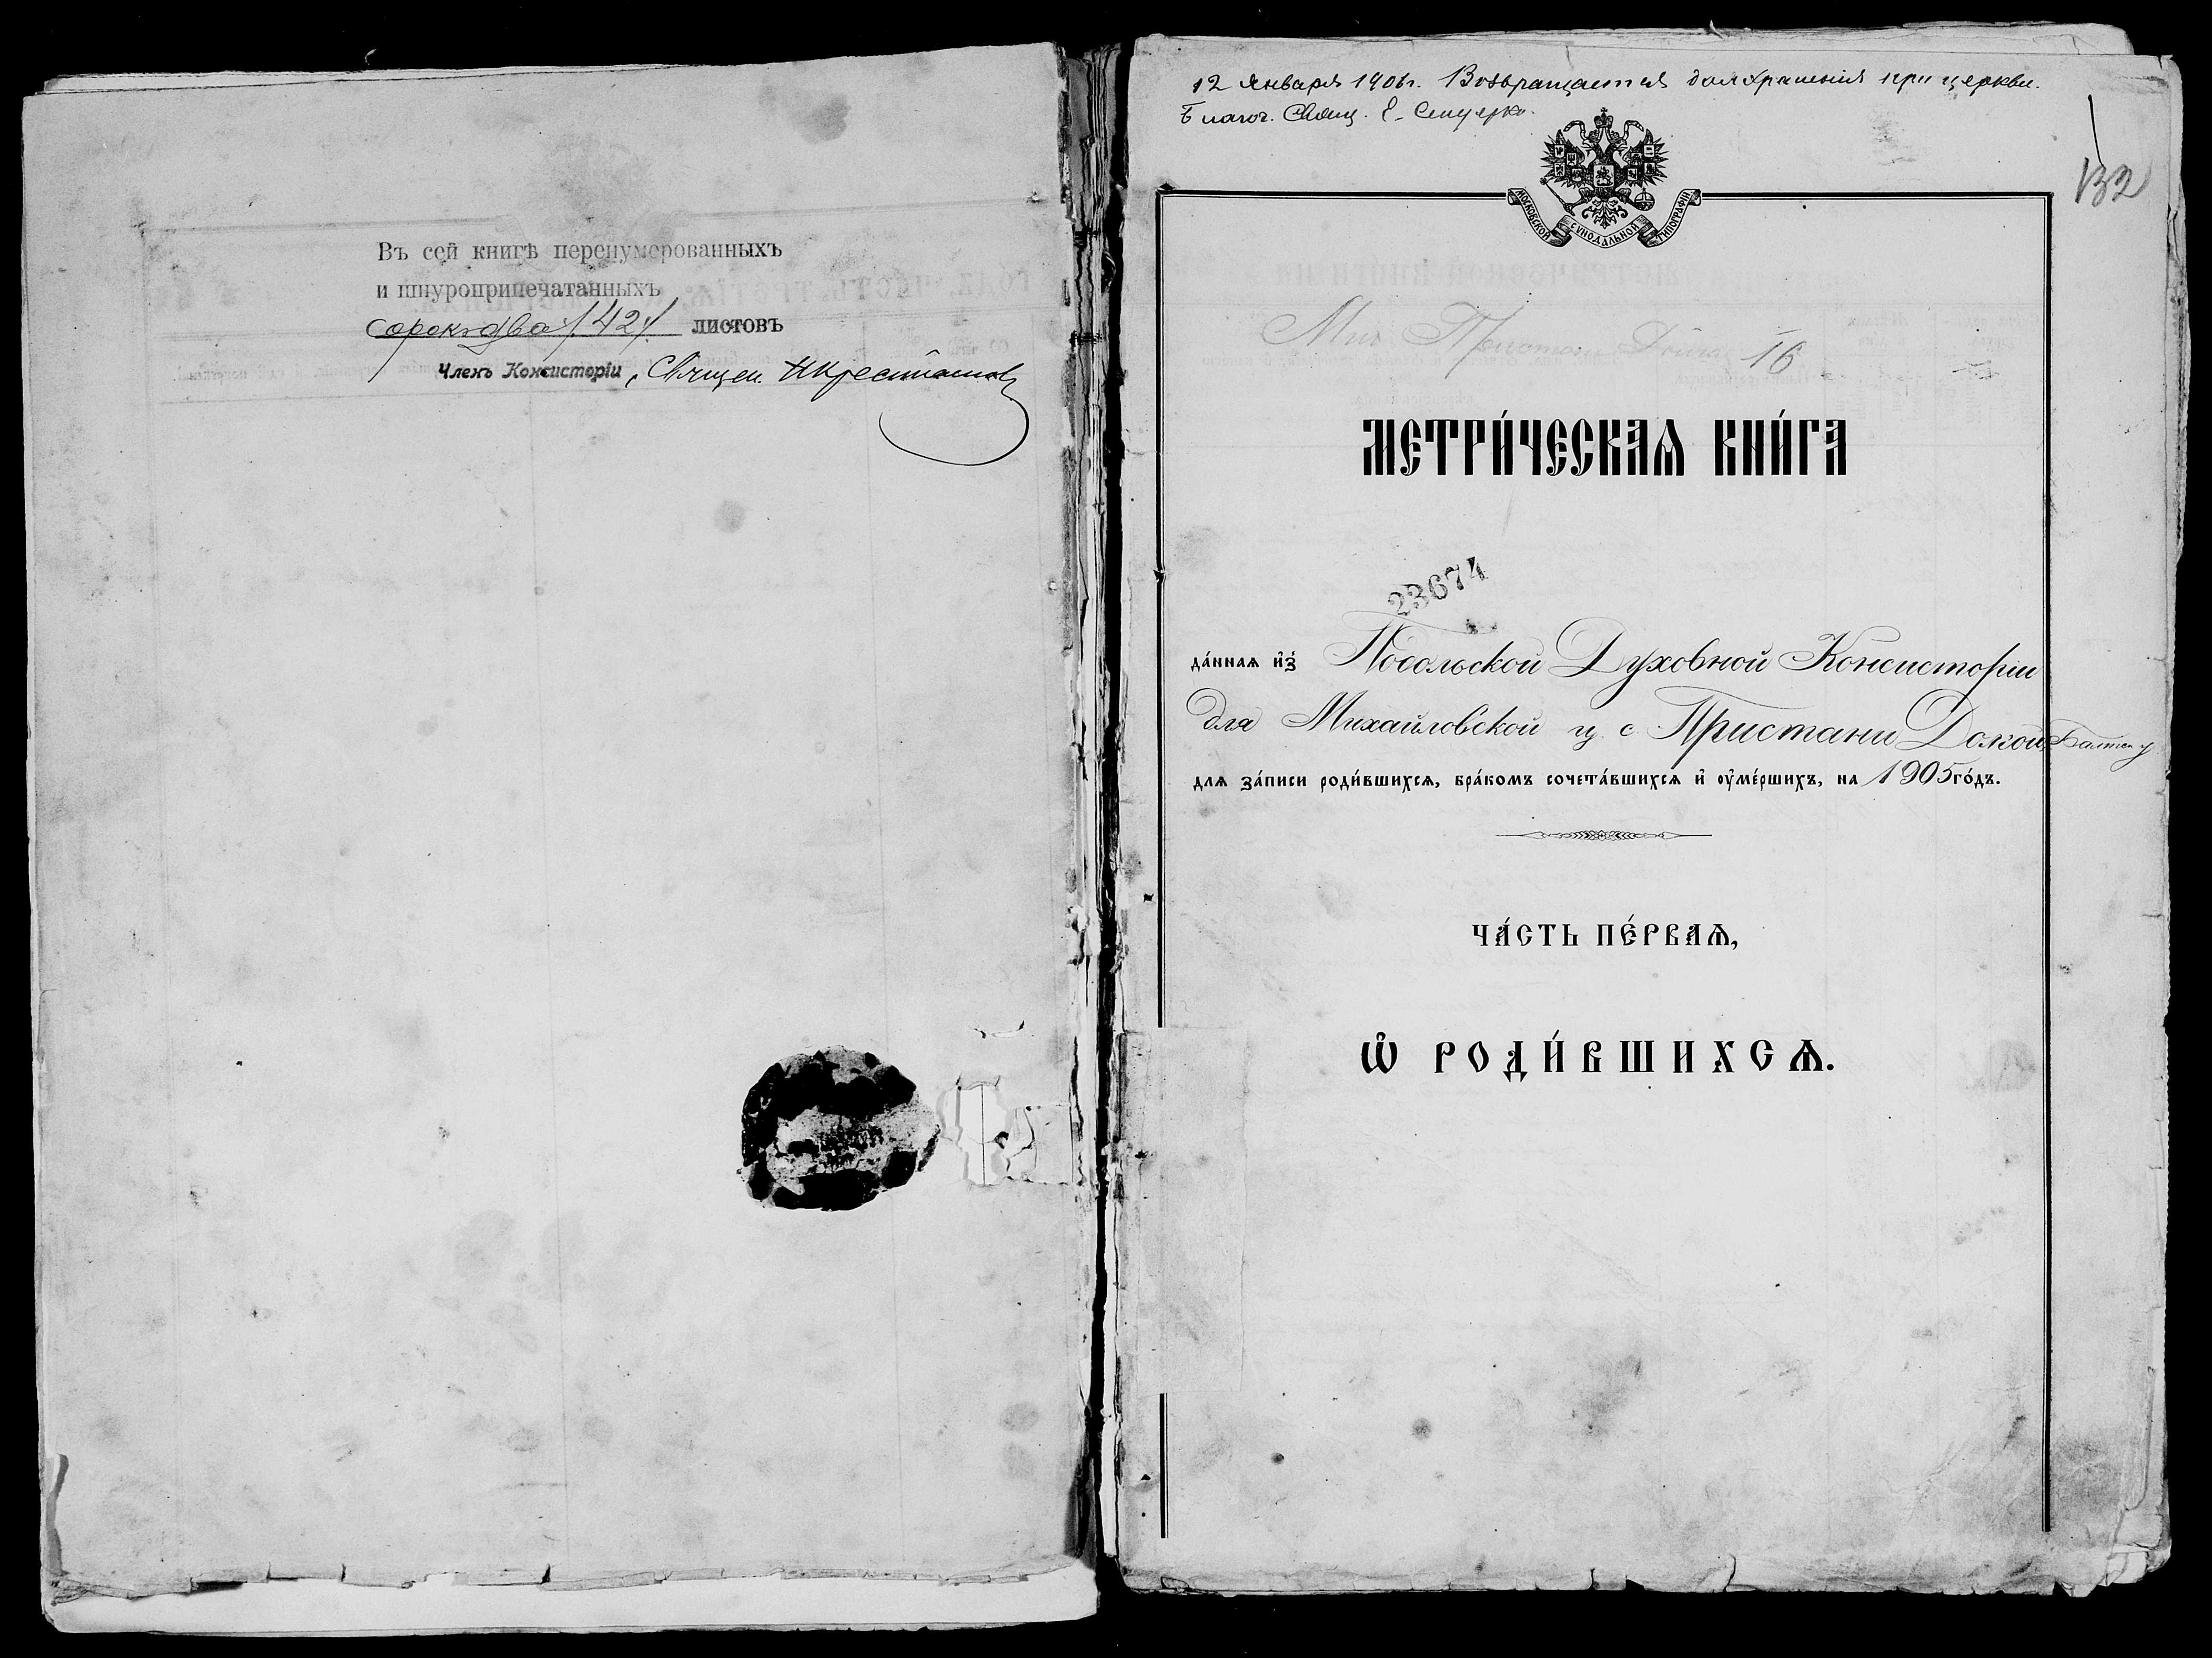 Въ сей книгѣ перенумерованныхъ
и шнуроприпечатанныхъ
сорокъ два /42/ листовъ
Членъ Консисторіи, Священ.
12 Января 1906 г. Возвращается для храненія при церкви.
Благоч. Свящ. Е.
132
МОСКОВСКОЙ СѴНОДАЛЬНОЙ ТИПОГРАФІИ
Мих Пристани 16
МЕТРИ́ЧЕСКАѦ КНИ́ГА
23674
да́ннаѧ и҆з̾ Подольской Духовной Консисторіи
для Михайловской ц. с. Пристани
длѧ за́писи роди́вшихсѧ, бра́комъ сочета́вшихсѧ и҆ ᲂу҆ме́ршихъ, на 1905 го́дъ.
ЧА́СТЬ ПЕ́РВАѦ,
Ѽ РОДИ́ВШИХСѦ.